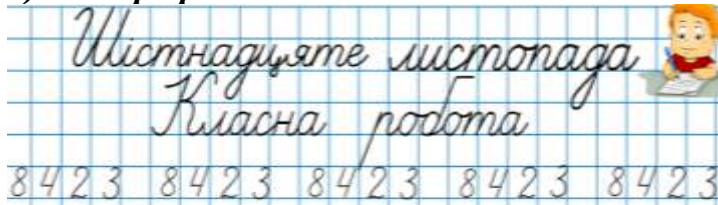 Шістнадцяте листопада
Класна робота
8 4 2 3 8 4 2 3 8 4 2 3 8 4 2 3 8 4 2 3